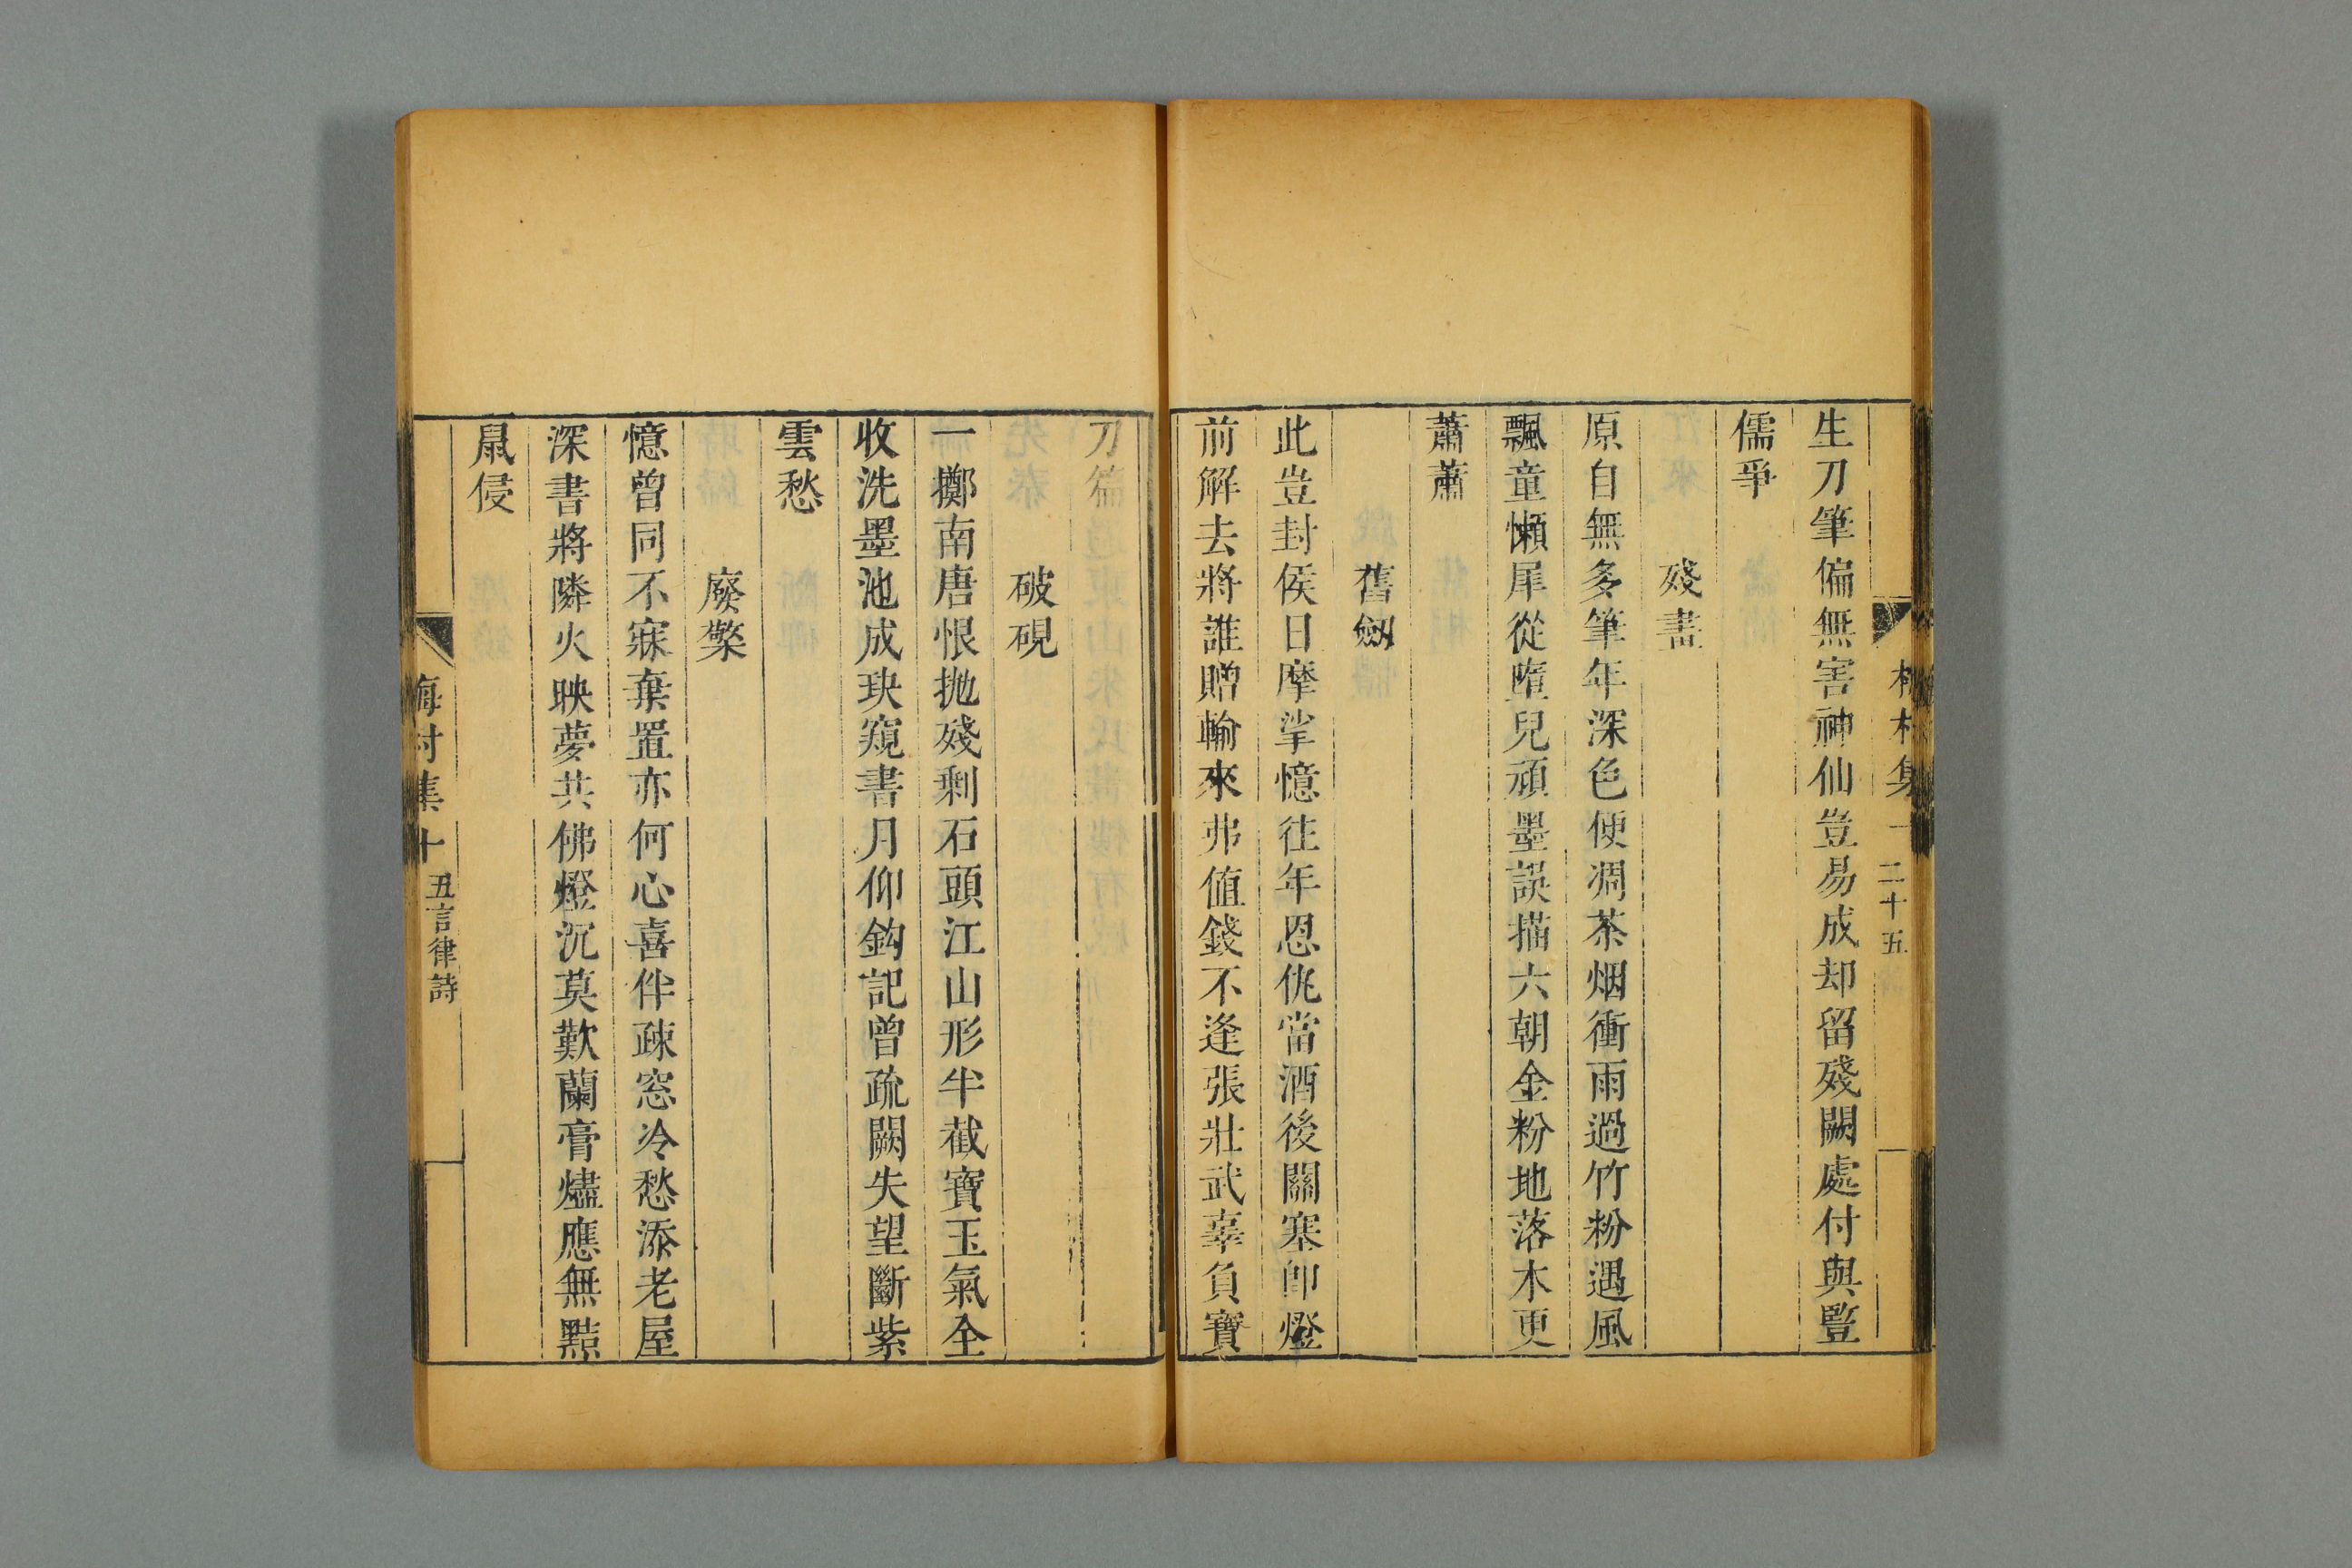 二十五
生刀筆偏無害神仙豈易成却留殘闕處付與豎
儒爭
殘畫
原自無多筆年深色便凋茶烟衝雨過竹粉遇風
飄童懶犀從墮兒頑墨誤描六朝金粉地落木更
蕭蕭
舊劔
此豈封侯日摩挲憶往年恩仇當酒後關塞卽燈
前解去將誰贈輸來弗值錢不逢張壯武辜負寶
刀篇
破硯
一擲南唐恨拋殘剩石頭江山形半截寶玉氣全
收洗墨池成玦窺書月仰鈎記曾疏闕失望斷紫
雲愁
廢檠
憶曾同不寐棄置亦何心喜伴疎窓冷愁添老屋
深書將隣火映夢共佛燈沉莫歎蘭膏燼應無點
鼠侵
梅村集十 五言律詩